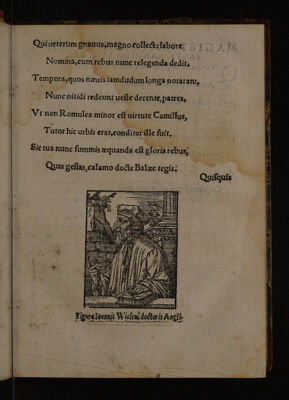 Qui ueterum gnauus, magno collecta labore
Nomina, cum rebus nunc relegenda dedit,
Tempora, quos næuis iamdudum longa notarant,
Nunc nitidi redeunt ueste decente, patres,
Vt non Romulea minor est uirtute Camillus,
Tutor hic urbis erat, conditor ille fuit,
Sic tua nunc summis æquanda est gloria rebus,
Quas gestas, calamo docte Balæe tegis.
Quisquis
Figura Ioannis Wicleui doctoris Angli.